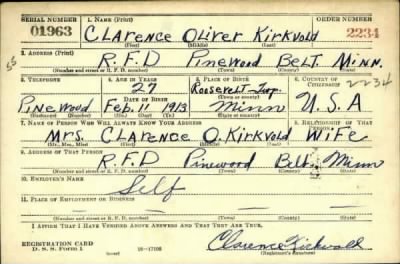 SERIAL NUMBER 1. NAME (Print) ORDER NUMBER
01963 CLARENCE OLIVER KIRKVOLD 2234
(First) (Middle) (Last)
2. ADDRESS (Print)
R.F.D Pinewood Belt. Minn.
(Number and street or R. F. D. number) (Town) (County) (State)
3. TELEPHONE 4. AGE IN YEARS 5. PLACE OF BIRTH 6. COUNTRY OF CITIZENSHIP
27 Roosevelt Twp. 2234
(Town or county)
Pinewood DATE OF BIRTH
Feb. 11 1913 Minn U.S.A
(Exchange) (Number) (Mo.) (Day) (Yr.) (State or country)
7. NAME OF PERSON WHO WILL ALWAYS KNOW YOUR ADDRESS 8. RELATIONSHIP OF THAT PERSON
Mrs. CLARENCE O. Kirkvold Wife
(Mr., Mrs., Miss) (First) (Middle) (Last)
9. ADDRESS OF THAT PERSON
R.F.D Pinewood Belt. Minn
(Number and street or R. F. D. number) (Town) (County) (State)
10. EMPLOYER'S NAME
Self
11. PLACE OF EMPLOYMENT OR BUSINESS
(Number and street or R. F. D. number) (Town) (County) (State)
I AFFIRM THAT I HAVE VERIFIED ABOVE ANSWERS AND THAT THEY ARE TRUE.
REGISTRATION CARD
D. S. S. Form 1 16-17105 Clarence Kirkvold
(Registrant's signature)